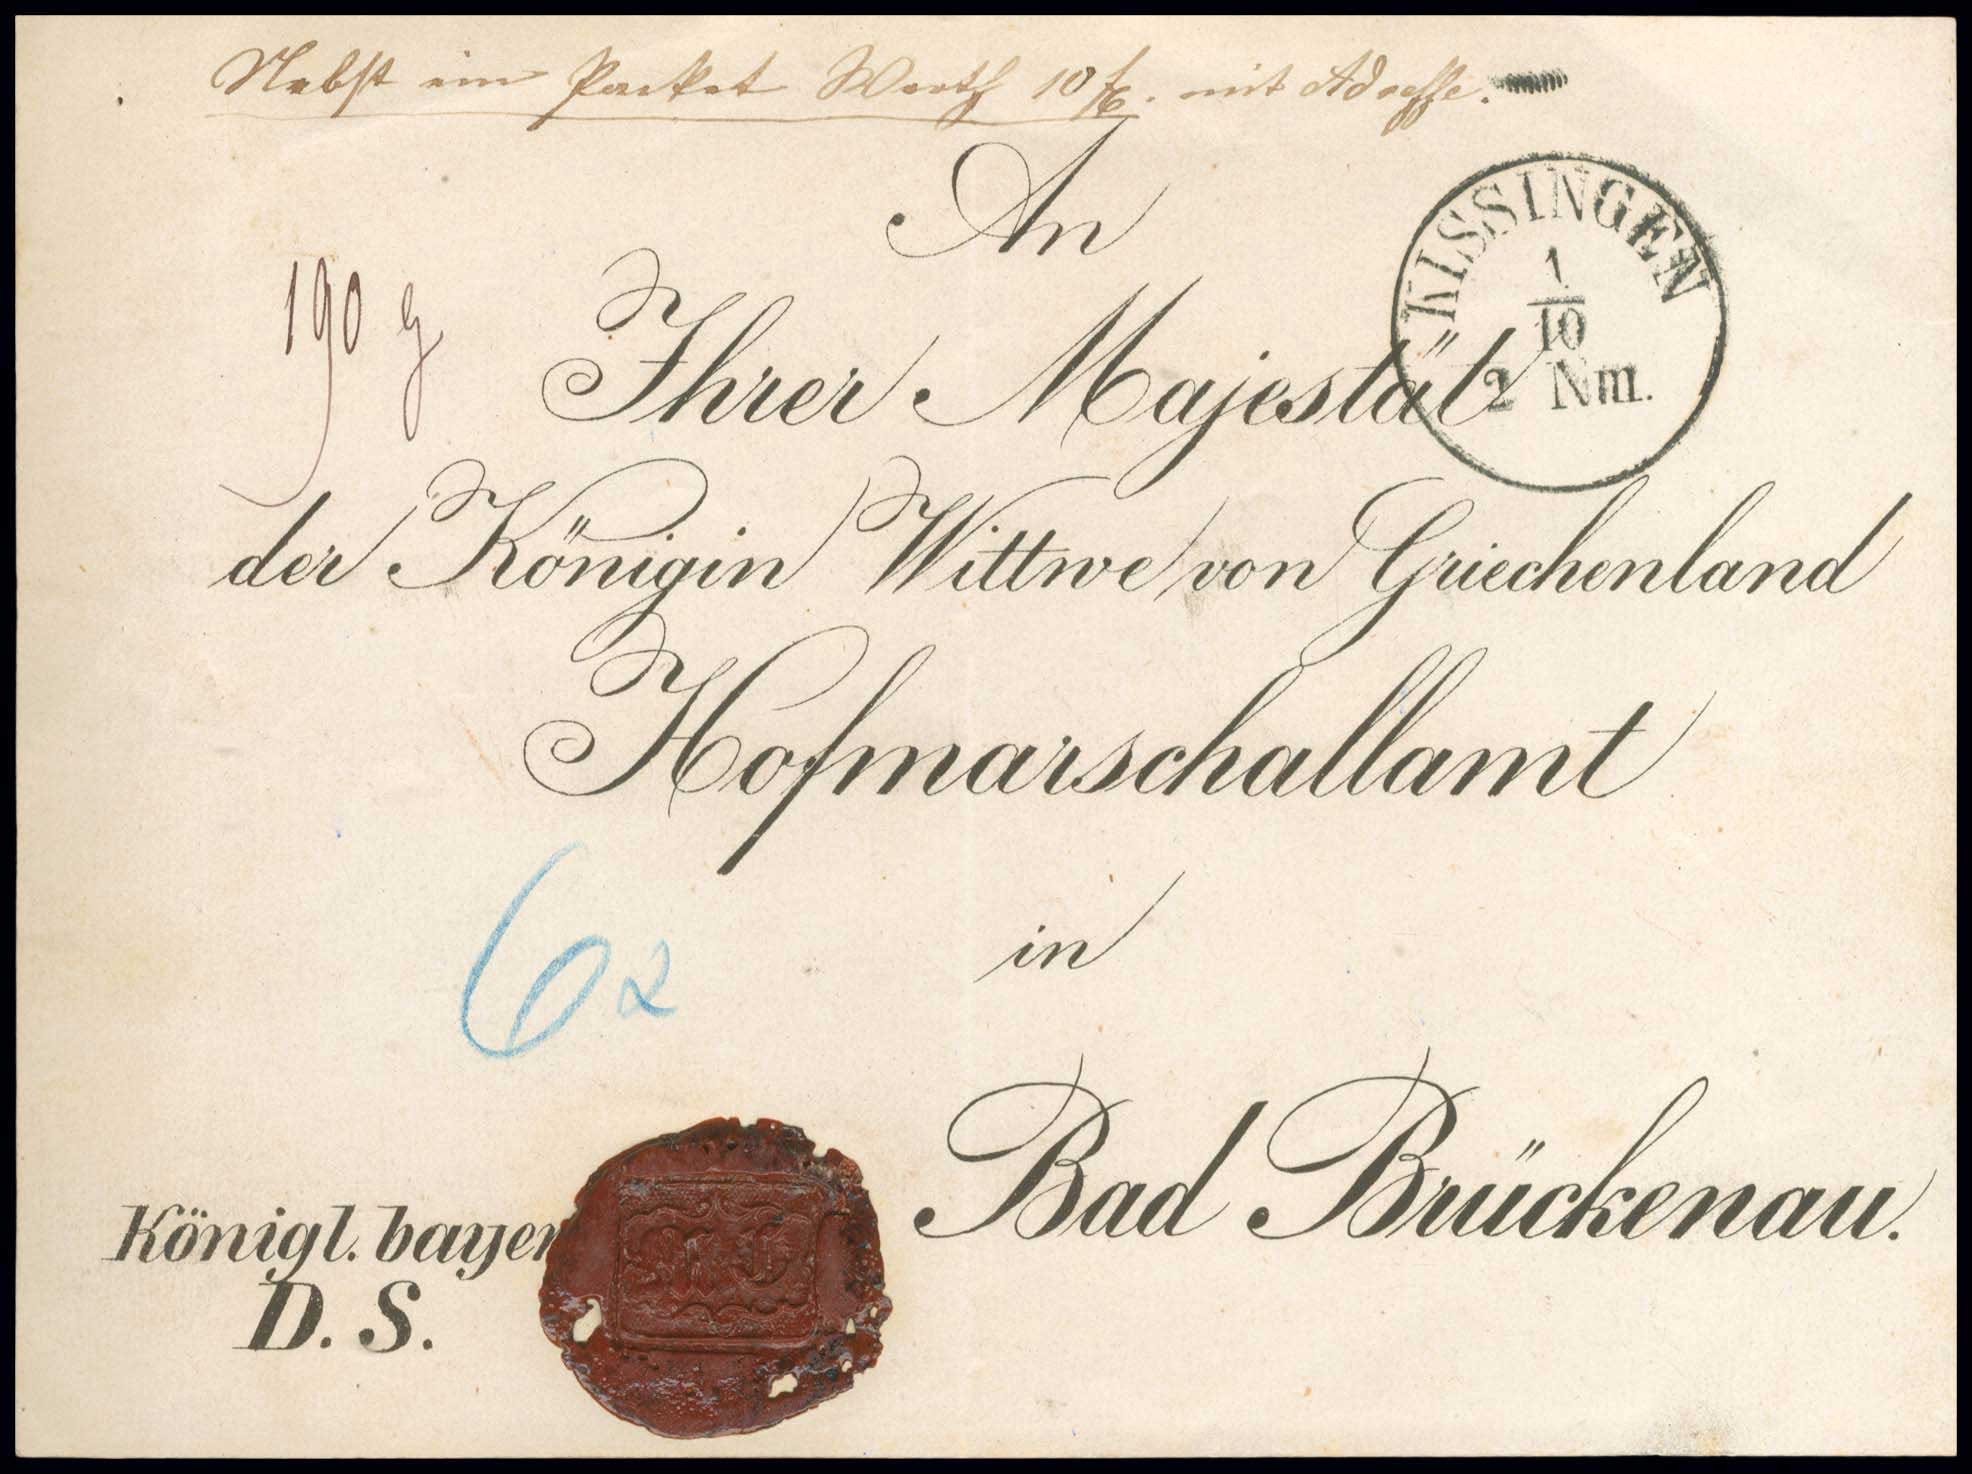 Nebst ein Packet Werth 10 fl. mit Adresse.
An
KISSINGEN
1
10
2 Nm.
190 g
Ihrer Majestät
der Königin Wittwe von Griechenland
Hofmarschallamt
6
in
Bad Brückenau.
Königl. bayer
D. S.